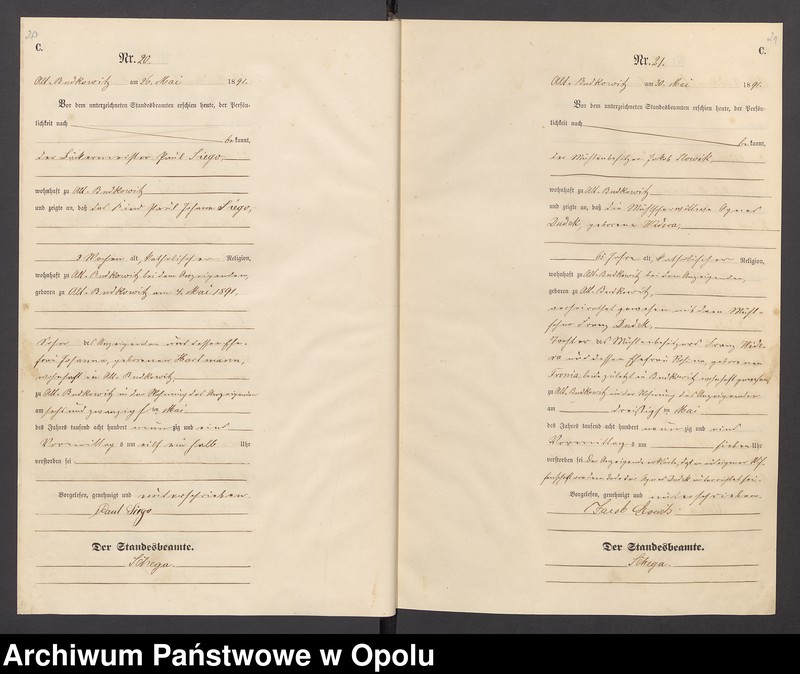 C.
Nr. 20.
Alt-Budkowitz am 26. Mai 1891.
Vor dem unterzeichneten Standesbeamten erschien heute, der Persön-
lichkeit nach
bekannt,
der Bäckermeister Paul Siego,
wohnhaft zu Alt-Budkowitz
und zeigte an, daß das Kind Paul Johann Siego,
3 Wochen alt, katholischer Religion,
wohnhaft zu Alt-Budkowitz bei dem Anzeigenden,
geboren zu Alt-Budkowitz am 4. Mai 1891,
Sohn des Anzeigenden und dessen Ehe-
frau Johanna, geborenen Hartmann,
wohnhaft in Alt-Budkowitz,
zu Alt-Budkowitz in der Wohnung des Anzeigenden
am sechs und zwanzigsten Mai
des Jahres tausend acht hundert neunzig und eins
Vormittags um eilf ein halb Uhr
verstorben sei
Vorgelesen, genehmigt und unterschrieben
Paul Siego
Der Standesbeamte.
C.
Nr. 21.
Alt-Budkowitz am 30. Mai 1891.
Vor dem unterzeichneten Standesbeamten erschien heute, der Persön-
lichkeit nach
bekannt,
der Mühlenbesitzer Jakob
wohnhaft zu Alt-Budkowitz
und zeigte an, daß die Agnes
Dudek, geborene Widera,
65 Jahre alt, katholischer Religion,
wohnhaft zu Alt-Budkowitz bei dem Anzeigenden,
geboren zu Alt-Budkowitz,
verheirathet gewesen mit dem
Franz Dudek,
Tochter des Mühlenbesitzers Franz Wide-
ra und dessen Ehefrau geborenen
beide zuletzt in Budkowitz wohnhaft gewesen
zu Alt-Budkowitz in der Wohnung des Anzeigenden
am dreißigsten Mai
des Jahres tausend acht hundert neunzig und eins
Vormittags um sieben Uhr
verstorben sei. Der Anzeigende erklärte, daß er aus eigener Wis-
senschaft von dem Tode der Agnes Dudek unterrichtet sei.
Vorgelesen, genehmigt und unterschrieben
Jacob
Der Standesbeamte.
Archiwum Państwowe w Opolu